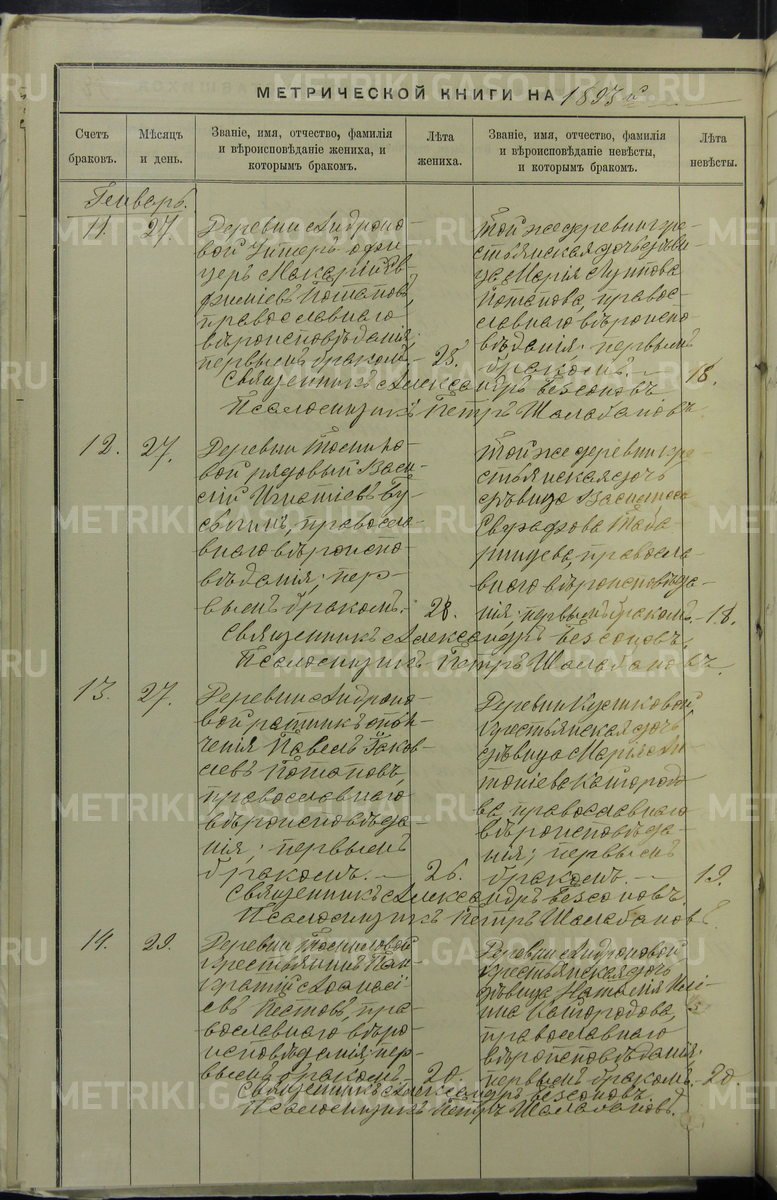 МЕТРИЧЕСКОЙ КНИГИ НА 1893 й
Счетъ браковъ.
Мѣсяцъ и день.
Званіе, имя, отчество, фамилія
и вѣроисповѣданіе жениха, и
которымъ бракомъ.
Лѣта жениха.
Званіе, имя, отчество, фамилія
и вѣроисповѣданіе невѣсты,
и которымъ бракомъ.
Лѣта невѣсты.
Генварь.
11. 27.
Деревни Андроно-
вой Унтеръ офи-
церъ Макарій Ев-
фиміевъ Потаповъ,
православнаго
вѣроисповѣданія;
первымъ бракомъ. 25.
Той же деревни кре-
стьянская дочь дѣви-
ца Марія Луппова
Потапова, правос-
лавнаго вѣроиспо-
вѣданія; первымъ
бракомъ. 18.
Священникъ Александръ Безсоновъ.
Псаломщикъ Петръ Шалабановъ.
12. 27.
Деревни
вой рядовый Васи-
лій Игнатіевъ
православ-
наго вѣроиспо-
вѣданія; пер-
вымъ бракомъ. 28.
Той же деревни кре-
стьянская дочь
дѣвица Василиса
православ-
наго вѣроисповѣда-
нія; первымъ бракомъ. 18.
Священникъ Александръ Безсоновъ.
Псаломщикъ Петръ Шалабановъ.
13. 27.
Деревни Андроно-
вой ратникъ опол-
ченія Павелъ Іаков-
левъ Потаповъ,
православнаго
вѣроисповѣда-
нія; первымъ
бракомъ. 26.
Деревни
крестьянская дочь
дѣвица Марія Ан-
тоніева Кайгородо-
ва, православнаго
вѣроисповѣда-
нія; первымъ
бракомъ. 19.
Священникъ Александръ Безсоновъ.
Псаломщикъ Петръ Шалабановъ.
14. 29.
Деревни
крестьянинъ Пан-
кратій Аѳанасі-
евъ Пестовъ, пра-
вославнаго вѣро-
исповѣданія; пер-
вымъ бракомъ. 20.
Деревни Андроновой
крестьянская дочь
дѣвица Наталія
Кайгородова,
православнаго
вѣроисповѣданія;
первымъ бракомъ. 20.
Священникъ Александръ Безсоновъ.
Псаломщикъ Петръ Шалабановъ.
METRIKI.GASO-URAL.RU